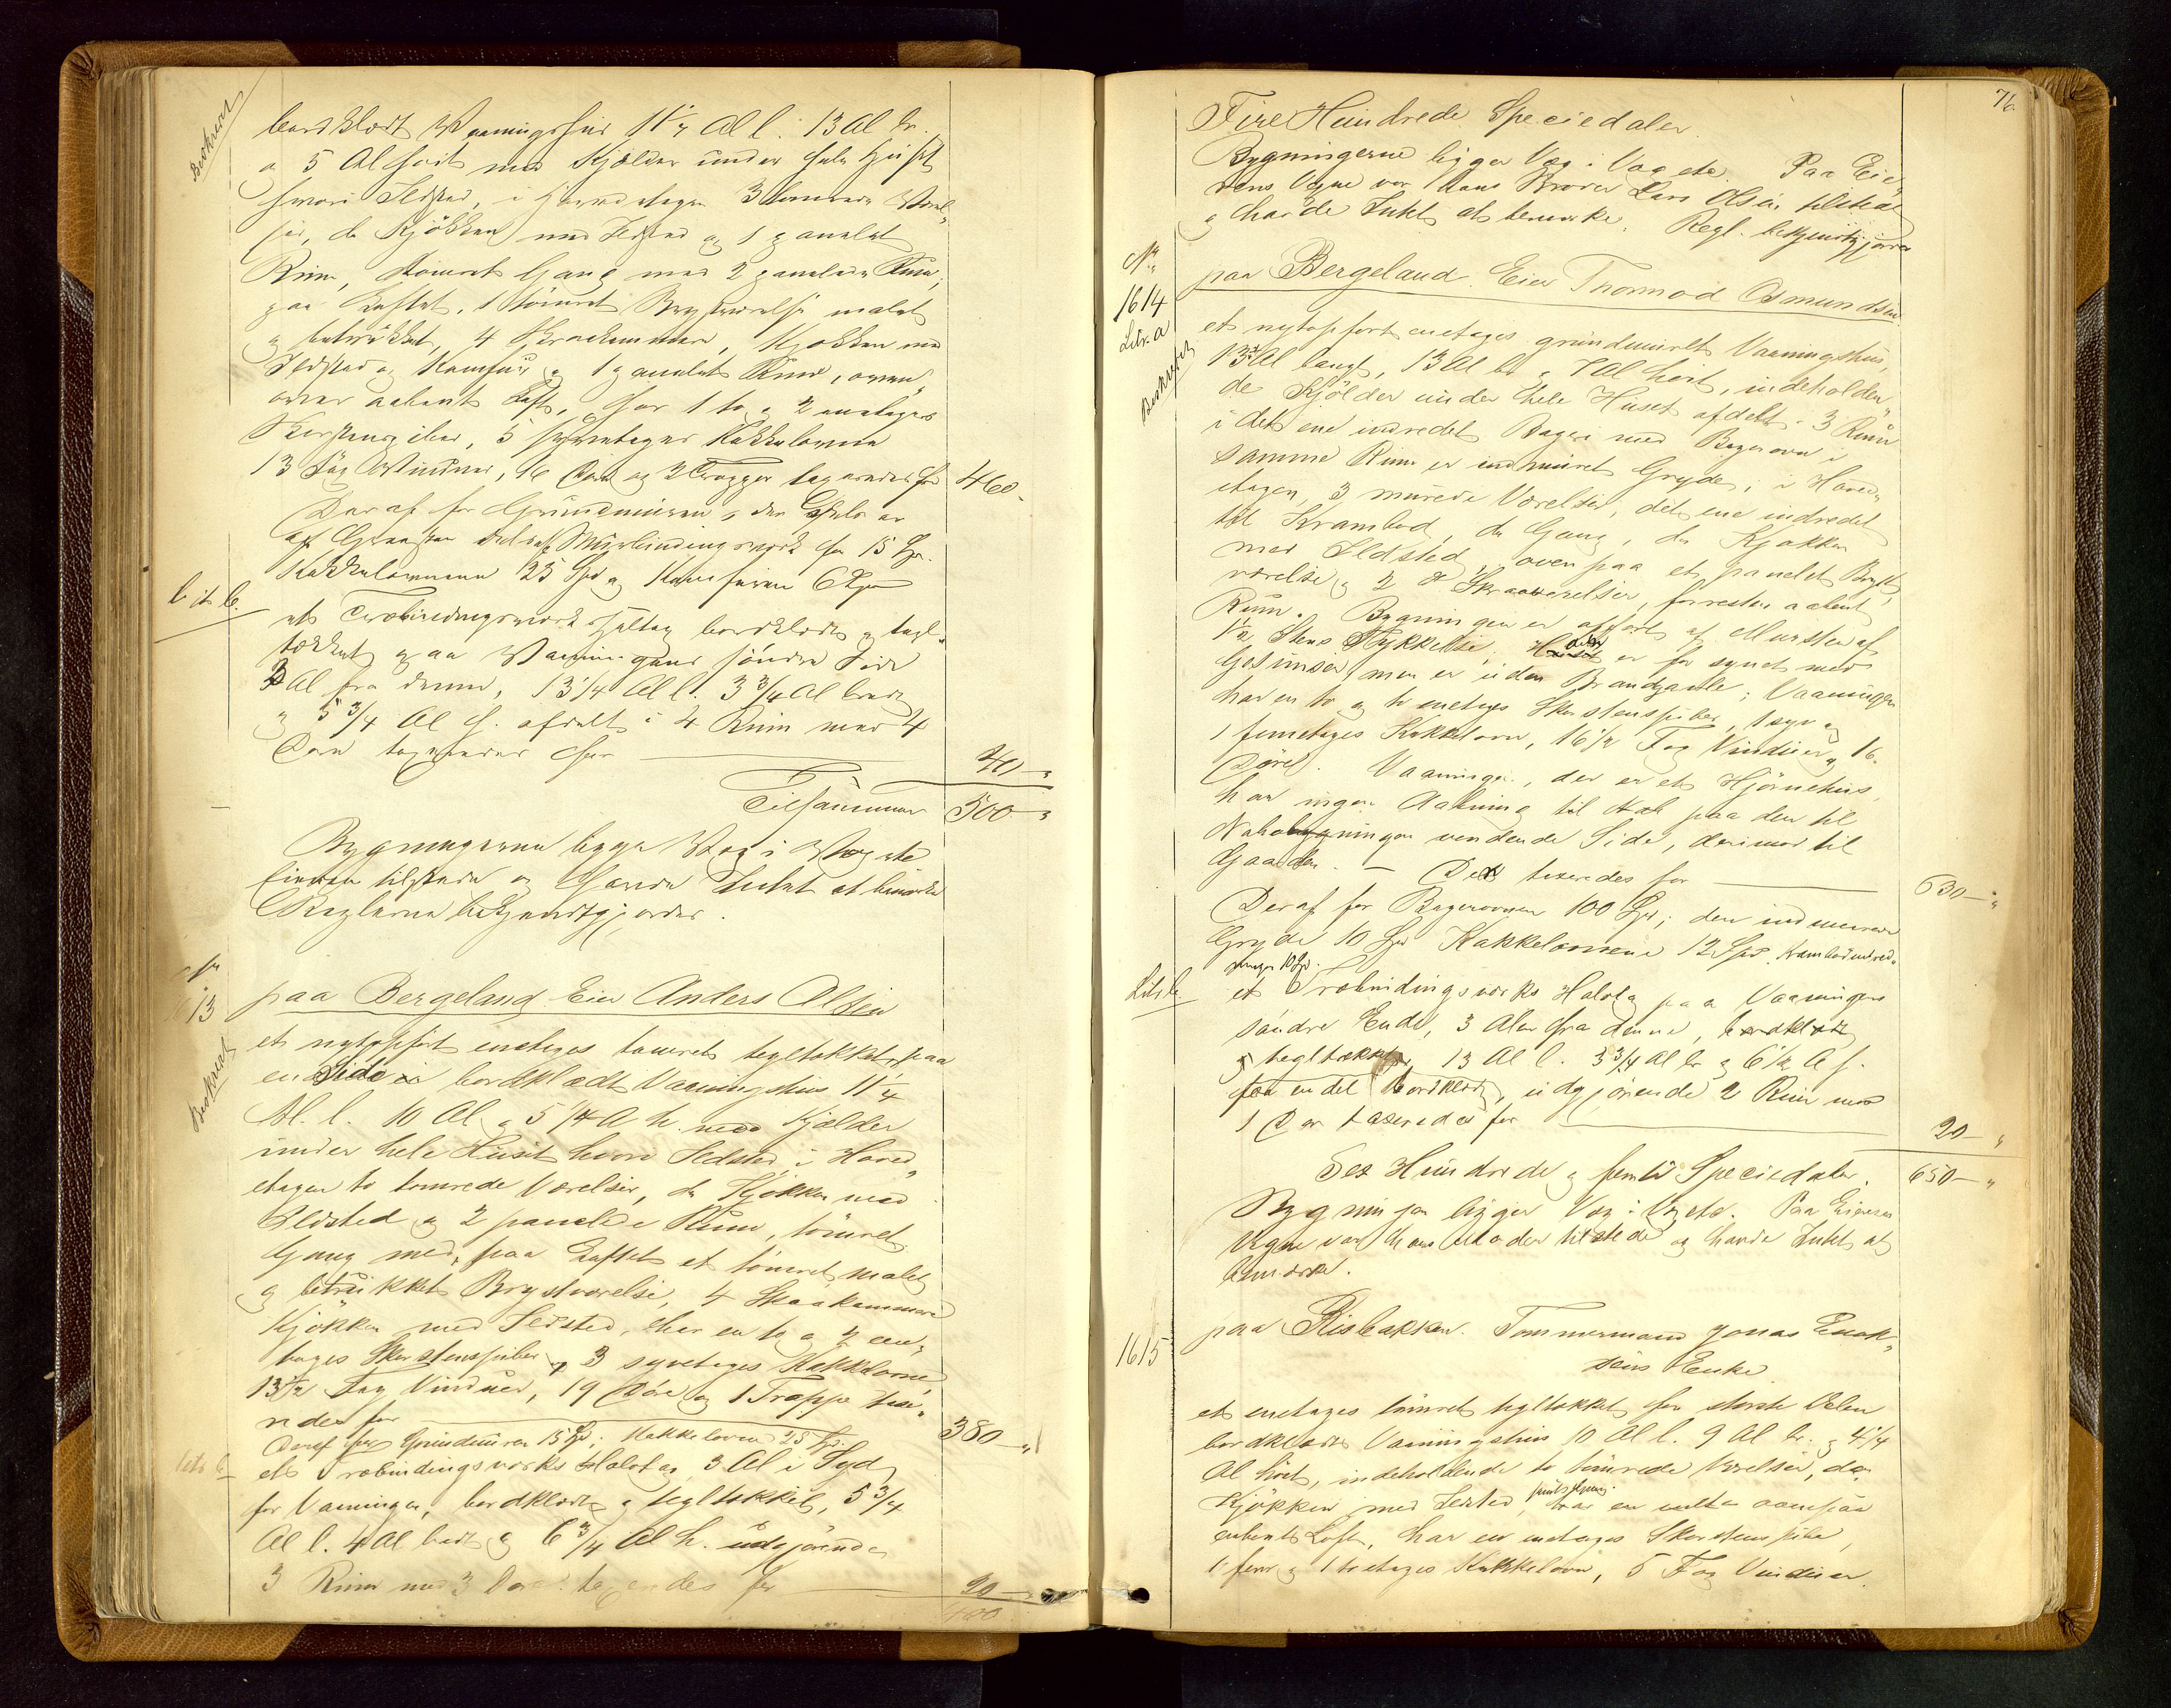 Beskrevet
bordklædt Vaaningshus 11 1/2 Al l. 13 Al br.
og 5 Al høit med Kjelder under hele Huset
hvori Ildsted, i Hovedetagen 3 tømrede Værel„
ser, do Kjøkken med Ildsted og 1 panelet
Rum, tømret Gang med 2 panelede Rum,
paa Loftet, 1 tømret Brystværelse malet
og betrukket, 4 Skraakammere, Kjøkken med
Ildsted og Komfur og 1 panelet Rum, oven„
over aabent Loft, har 1 to og 2 enetages
Skorstenspiber, 5 Kakkelovne
13 Fag Vinduer, 16 Døre og 2 Trapper taxeredes for 460-
Deraf for Grundmuren, der
af Graasten Murbindingsværk for 15 Spd.
Kakkelovnene 25 Spd og Komfuren 6 Spd
Litr b.
et Træbindingsværks Halvtag bordklædt og tegl„
tækket paa Vaaningens søndre Side
3 Al fra denne, 13 1/4 Al l. 3 3/4 Al bredt
og 5 3/4 Al h. afdelt i 4 Rum med 4
Døre taxeredes for 40 - „
Tilsammen 500 - „
Bygningerne ligger Væg i Væg etc
Eieren tilstede og havde Intet at bemærke
Reglerne bekjendtgjordes.
No
1613
paa Bergeland Eier Anders Olsen
Beskrevet
et nytopført enetages tømret tegltækket, paa
en Side bordklædt Vaaningshus 11 1/4
Al. l. 10 Al og 5 1/4 A h. med Kjælder
under hele Huset hvori Ildsted, i Hoved„
etagen to tømrede Værelser, do Kjøkken med
Ildsted og 2 panelede Rum, tømret
Gang med, paa Loftet et tømret, malet
og betrukket Brystværelse, 4 Skraakammere
Kjøkken med Ildsted, har en to og 2 en„
tages Skorstenspiber og 3 syvetages Kakkelovne
13 1/2 Fag Vinduer, 19 Døre og 1 Trappe taxe„
redes for 380 - „
Deraf for Grundmuren 15 Spd; Kakkelovnene 25 Spd.
Litr b.
et Træbindingsværks Halvtag, 3 Al i Syd
for Vaaningen, bordklædt og tegltækket, 5 3/4
Al l. 4 Al bredt og 6 3/4 Al h. udgjørende
3 Rum med 3 Døre taxeredes for 20 -
400
76.
Fire Hundrede Speciedaler
Bygningerne ligger Væg i Væg etc. Paa Eie„
rens Vegne var hans Broder Lars Olsen tilstede
og havde Intet at bemærke. Regl. bekjendtgjordes
No
1614
Litr. a
Beskrevet
paa Bergeland. Eier Thormod Osmundsen
et nytopført enetages grundmuret Vaaningshus,
13 3/4 Al langt, 13 Al br og 7 Al høit, indeholden„
de Kjølder under hele Huset afdelt i 3 Rum
i det ene indredet Bageri med Bagerovn i
samme Rum er indmuret Gryde; i Hoved„
etagen, 3 murede Værelser, det ene indredet
til Krambod, do Gang, do Kjøkken
med Ildsted, ovenpaa et panelet Bryst„
værelse og 2 do Skraaværelser, forresten aabent
Rum. Bygningen er opført af Mursten af
1 1/2 Stens Tykkelse, er forsynet med
Gesimser, men er uden Brandgavle; Vaaningen
har en to og to enetages Skorstenspiber, 1 syv og
1 femetages Kakkelovn, 16 1/2 Fag Vinduer og 16
Døre. Vaaningen, der er et Hjørnehus,
har ingen Aabning til Tak paa den til
Nabobygningen vendende Side, derimod til
Gaarden. — Det taxeredes for 630 - „
Deraf for Bagerovnen 100 Spd; den indmurede
Gryde 10 Spd Kakkelovnene 12 Spd. Krambodindred„
ningen 10 Spd.
Litr b.
et Træbindingsværks Halvtag paa Vaaningens
søndre Ende, 3 Alen fra denne, bordklædt
og tegltækket, 13 Al l. 3 3/4 Al br og 6 1/2 A h.
for en del bordklædt, udgjørende 2 Rum med
1 Dør taxeredes for 20 - „
Sex Hundrede og femti Speciedaler. 650 - „
Bygningen ligger Væg i Væg etc. Paa Eierens
Vegne var hans Moder tilstede og havde Intet at
bemærke.
1615
paa Risbakken. Tømmermand Jonas Enok„
sens Enke
et enetages tømret tegltækket for største Delen
bordklædt Vaaningshus 10 Al l. 9 Al br. og 4 1/4
Al høit, indeholdende to tømrede Værelser, do
Kjøkken med Ildsted, ovenpaa
aabent Loft, har en enetages Skorstenspibe,
1 fem og 1 toetages Kakkelovn, 5 Fag Vinduer